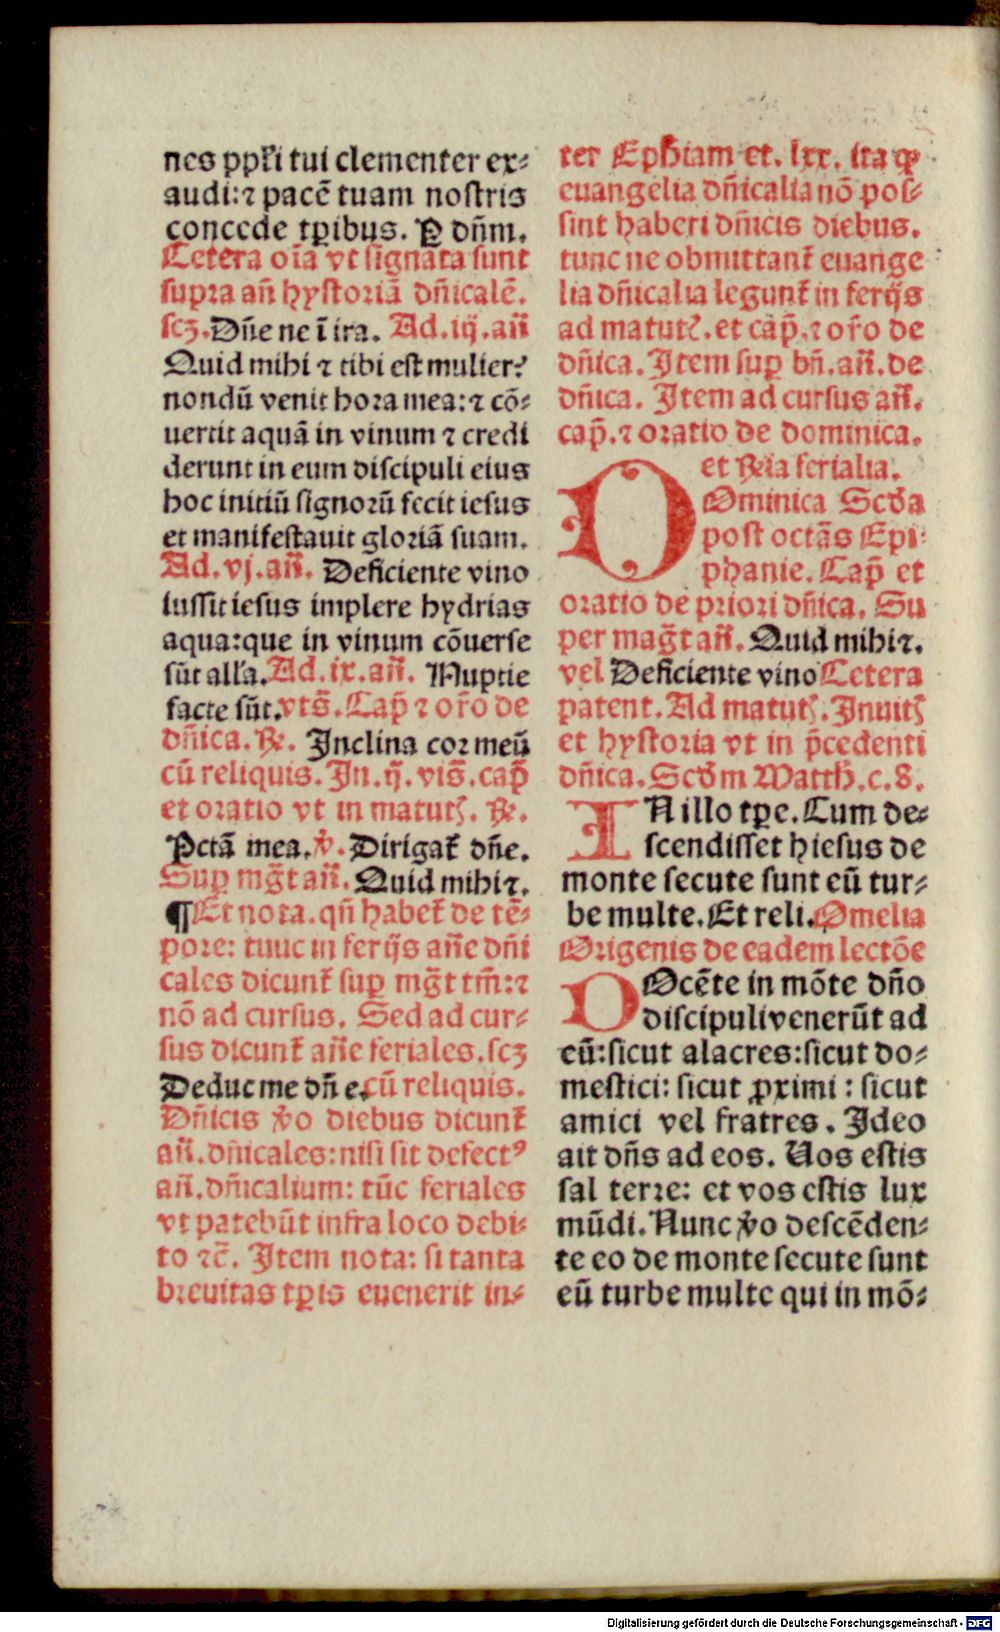 nes ppl̄i tui clementer ex-
audi:⁊ pacē tuam nostris
concede tꝑibus. P̱ dn̄m.
Cetera oīa vt signata sunt
supra an̄ hystoriā dn̄icalē.
scꝫ. Dn̄e ne ī ira. Ad.iij.an̄
Quid mihi ⁊ tibi est mulier?
nondū venit hora mea:⁊ cō-
uertit aquā in vinum ⁊ credi
derunt in eum discipuli eius
hoc initiū signorū fecit iesus
et manifestauit gloriā suam.
Ad.vj.an̄. Deficiente vino
iussit iesus implere hydrias
aqua:que in vinum cōuerse
sūt all'a. Ad.ix.an̄. Nuptie
facte sūt. vts̄. Cap̄ ⁊ or̄o de
dn̄ica. ℟. Inclina cor meū
cū reliquis. In.ij.vis̄.cap̄
et oratio vt in matutꝭ. ℟.
Pctā mea. ℣. Dirigat̄ dn̄e.
Suꝑ mḡt an̄. Quid mihi⁊.
¶ Et nota.qn̄ habet̄ de tē-
pore: tuuc in ferijs an̄e dn̄i
cales dicunt̄ suꝑ mḡt tm̄:⁊
nō ad cursus. Sed ad cur-
sus dicunt̄ an̄e feriales.scꝫ
Deduc me dn̄ e. cū reliquis.
Dn̄icis ꝟo diebus dicunt̄
an̄.dn̄icales:nisi sit defectꝰ
an̄.dn̄icalium: tūc feriales
vt patebūt infra loco debi-
to ⁊c̄. Item nota: si tanta
breuitas tꝑis euenerit in-
ter Eph̄iam et. lxx. ita ꝙ
euangelia dn̄icalia nō pos-
sint haberi dn̄icis diebus.
tunc ne obmittant̄ euange
lia dn̄icalia legunt̄ in ferijs
ad matutꝭ. et cap̄.⁊ or̄o de
dn̄ica. Item suꝑ bn̄.an̄.de
dn̄ica. Item ad cursus an̄.
cap̄.⁊ oratio de dominica.
et ℟ia ferialia.
DOminica Scd̄a
post octās Epi-
phanie. Cap̄ et
oratio de priori dn̄ica. Su
per maḡt an̄. Quid mihi⁊.
vel Deficiente vino Cetera
patent. Ad matutꝭ. Inuitꝭ
et hystoria vt in p̄cedenti
dn̄ica. Scd̄m Matth̄.c.8.
IN illo tꝑe. Cum de-
scendisset hiesus de
monte secute sunt eū tur-
be multe. Et reli. Omelia
Origenis de eadem lectōe
DOcēte in mōte dn̄o
discipuli venerūt ad
eū:sicut alacres:sicut do-
mestici: sicut ꝓximi : sicut
amici vel fratres. Ideo
ait dn̄s ad eos. Uos estis
sal terre: et vos estis lux
mūdi. Nunc ꝟo descēden-
te eo de monte secute sunt
eū turbe multe qui in mō-
Digitalisierung gefördert durch die Deutsche Forschungsgemeinschaft - DFG